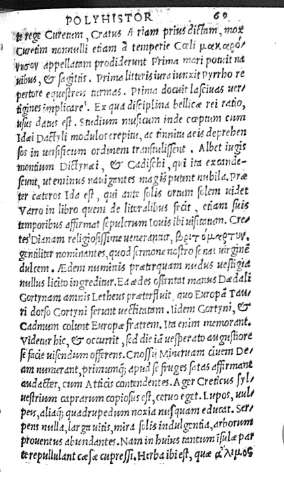 POLYHISTOR 60
te rege Curetum, Cratus A riam prius dictam, mox
Curetim nonnulli etiam à temperie Cœli μακαρό
νησον appellatam prodiderunt Prima mari potuit na
uibus, & sagittis. Prima litteris iura iunxit Pyrrho re
pertore equestreis turmas. Prima docuit lasciuas ver
tigines implicare. Ex qua disciplina bellicæ rei ratio,
usus datus est. Studium musicum inde cœptum cum
Idæi Dactyli modulos crepitu, ac tinnitu æris deprehen
sos in versificum ordinem transtulissent. Albet iugis
montium Dictynæi, & Cadisci, qui ita excande-
scunt, ut eminus nauigantes magis putent nubila. Præ-
ter cæteros Ida est, qui ante solis ortum solem videt
Varro in libro quem de litoralibus fecit, etiam suis
temporibus affirmat sepulcrum Iouis ibi visitatum. Cre-
tes Dianam religiosissime venerantur, βριτόμαρτυν.
gentiliter nominantes, quod sermone nostro sonat virginē
dulcem. Ædem numinis præterquam nudus vestigia
nullus licito ingreditur. Ea ædes ostentat manus Dædali
Gortynam amnis Letheus præterfluit, quo Europā Tau
ri dorso Gortyni ferunt vectitatam. Iidem Gortyni, &
Cadmum colunt Europæ fratrem. Ita enim memorant.
Videtur hic, & occurrit, sed die iā vesperato augustiore
se facie visendum offerens. Cnossii Mineruam ciuem De-
am numerant, primumq; apud se fruges satas affirmant
audacter, cum Atticis contendentes. Ager Creticus syl-
uestrium caprarum copiosus est, ceruo eget. Lupos, vul-
peis, aliaq; quadrupedum noxia nusquam educat. Ser-
pens nulla, larga vitis, mira solis indulgentia, arborum
prouentus abundantes. Nam in huius tantum isulæ par
te repullulant cæsæ cupressi. Herba ibi est, quæ ἄλιμος